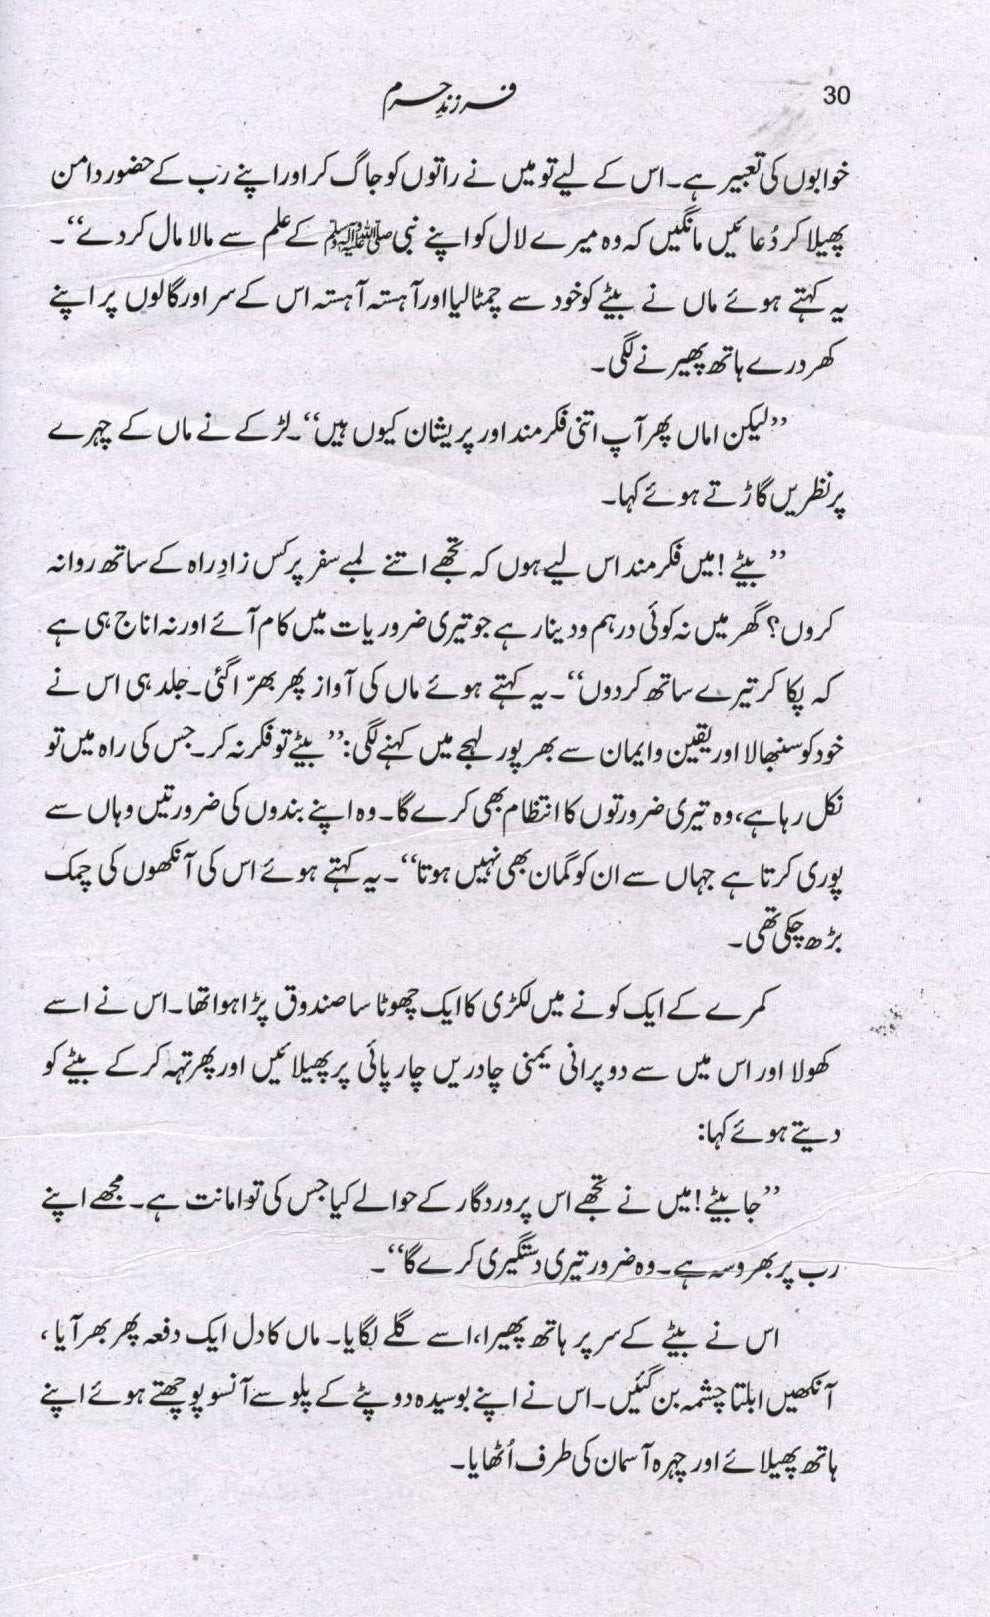 30
فرزندِ حرم
خوابوں کی تعبیر ہے۔ اس کے لیے تو میں نے راتوں کو جاگ کر اور اپنے رب کے حضور دامن
پھیلا کر دُعائیں مانگیں کہ وہ میرے لال کو اپنے نبی ﷺ کے علم سے مالا مال کر دے‘‘۔
یہ کہتے ہوئے ماں نے بیٹے کو خود سے چمٹا لیا اور آہستہ آہستہ اس کے سر اور گالوں پر اپنے
کھردرے ہاتھ پھیرنے لگی۔
’’لیکن اماں پھر آپ اتنی فکرمند اور پریشان کیوں ہیں‘‘۔ لڑکے نے ماں کے چہرے
پر نظریں گاڑتے ہوئے کہا۔
’’بیٹے! میں فکرمند اس لیے ہوں کہ تجھے اتنے لمبے سفر پر کس زادِ راہ کے ساتھ روانہ
کروں؟ گھر میں نہ کوئی درہم و دینار ہے جو تیری ضروریات میں کام آئے اور نہ اناج ہی ہے
کہ پکا کر تیرے ساتھ کر دوں‘‘۔ یہ کہتے ہوئے ماں کی آواز پھر بھرّا گئی۔ جلد ہی اس نے
خود کو سنبھالا اور یقین و ایمان سے بھرپور لہجے میں کہنے لگی: ’’بیٹے تو فکر نہ کر۔ جس کی راہ میں تو
نکل رہا ہے، وہ تیری ضرورتوں کا انتظام بھی کرے گا۔ وہ اپنے بندوں کی ضرورتیں وہاں سے
پوری کرتا ہے جہاں سے ان کو گمان بھی نہیں ہوتا‘‘۔ یہ کہتے ہوئے اس کی آنکھوں کی چمک
بڑھ چکی تھی۔
کمرے کے ایک کونے میں لکڑی کا ایک چھوٹا سا صندوق پڑا ہوا تھا۔ اس نے اسے
کھولا اور اس میں سے دو پرانی یمنی چادریں چارپائی پر پھیلائیں اور پھر تہہ کر کے بیٹے کو
دیتے ہوئے کہا:
’’جا بیٹے! میں نے تجھے اس پروردگار کے حوالے کیا جس کی تو امانت ہے۔ مجھے اپنے
رب پر بھروسہ ہے۔ وہ ضرور تیری دستگیری کرے گا‘‘۔
اس نے بیٹے کے سر پر ہاتھ پھیرا، اسے گلے لگایا۔ ماں کا دل ایک دفعہ پھر بھر آیا،
آنکھیں ابلتا چشمہ بن گئیں۔ اس نے اپنے بوسیدہ دوپٹے کے پلو سے آنسو پوچھتے ہوئے اپنے
ہاتھ پھیلائے اور چہرہ آسمان کی طرف اُٹھایا۔